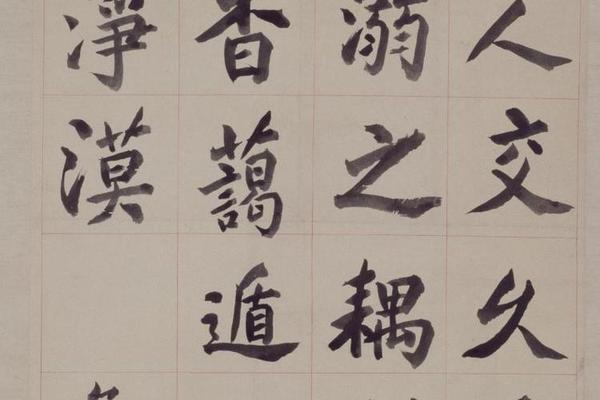 人交久
溺之耦
香藹遁
淨漠